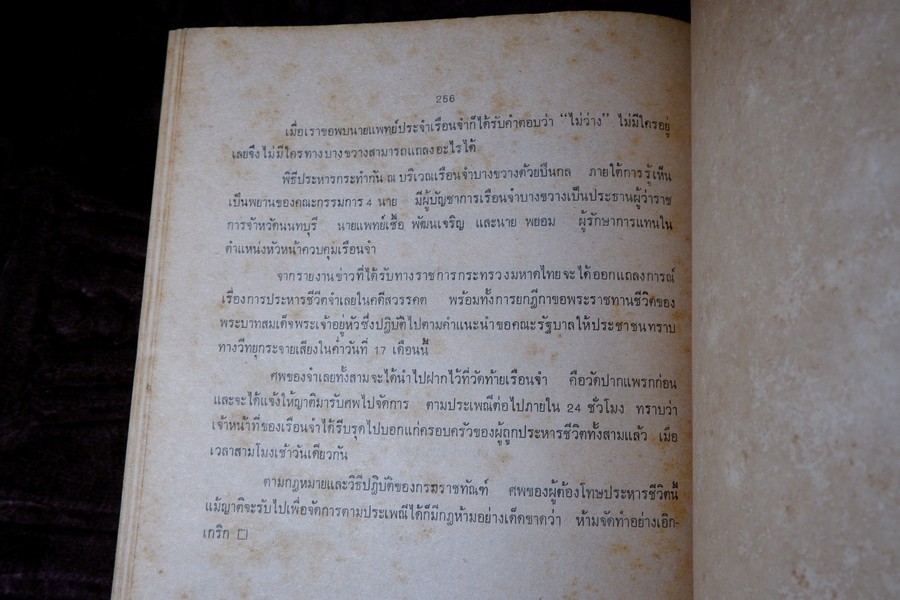 256
เมื่อเราขอพบนายแพทย์ประจำเรือนจำก็ได้รับคำตอบว่า “ไม่ว่าง” ไม่มีใครอยู่
เลยจึงไม่มีใครทางบางขวางสามารถแถลงอะไรได้
พิธีประหารกระทำกัน ณ บริเวณเรือนจำบางขวางด้วยปืนกล ภายใต้การรู้เห็น
เป็นพยานของคณะกรรมการ 4 นาย มีผู้บัญชาการเรือนจำบางขวางเป็นประธานผู้ว่าราช
การจังหวัดนนทบุรี นายแพทย์เชื้อ พัฒนเจริญ และนาย พยอม ผู้รักษาการแทนใน
ตำแหน่งหัวหน้าควบคุมเรือนจำ
จากรายงานข่าวที่ได้รับทางราชการกระทรวงมหาดไทยจะได้ออกแถลงการณ์
เรื่องการประหารชีวิตจำเลยในคดีสวรรคต พร้อมทั้งการยกฎีกาขอพระราชทานชีวิตของ
พระบาทสมเด็จพระเจ้าอยู่หัวซึ่งปฏิบัติไปตามคำแนะนำขอคณะรัฐบาลให้ประชาชนทราบ
ทางวิทยุกระจายเสียงในค่ำวันที่ 17 เดือนนี้
ศพของจำเลยทั้งสามจะได้นำไปฝากไว้ที่วัดท้ายเรือนจำ คือวัดปากแพรกก่อน
และจะได้แจ้งให้ญาติมารับศพไปจัดการ ตามประเพณีต่อไปภายใน 24 ชั่วโมง ทราบว่า
เจ้าหน้าที่ของเรือนจำได้รีบรุดไปบอกแก่ครอบครัวของผู้ถูกประหารชีวิตทั้งสามแล้ว เมื่อ
เวลาสามโมงเช้าวันเดียวกัน
ตามกฎหมายและวิธีปฏิบัติของกรมราชทัณฑ์ ศพของผู้ต้องโทษประหารชีวิตนี้
แม้ญาติจะรับไปเพื่อจัดการตามประเพณีได้ก็มีกฎห้ามอย่างเด็ดขาดว่า ห้ามจัดทำอย่างเอิก-
เกริก □